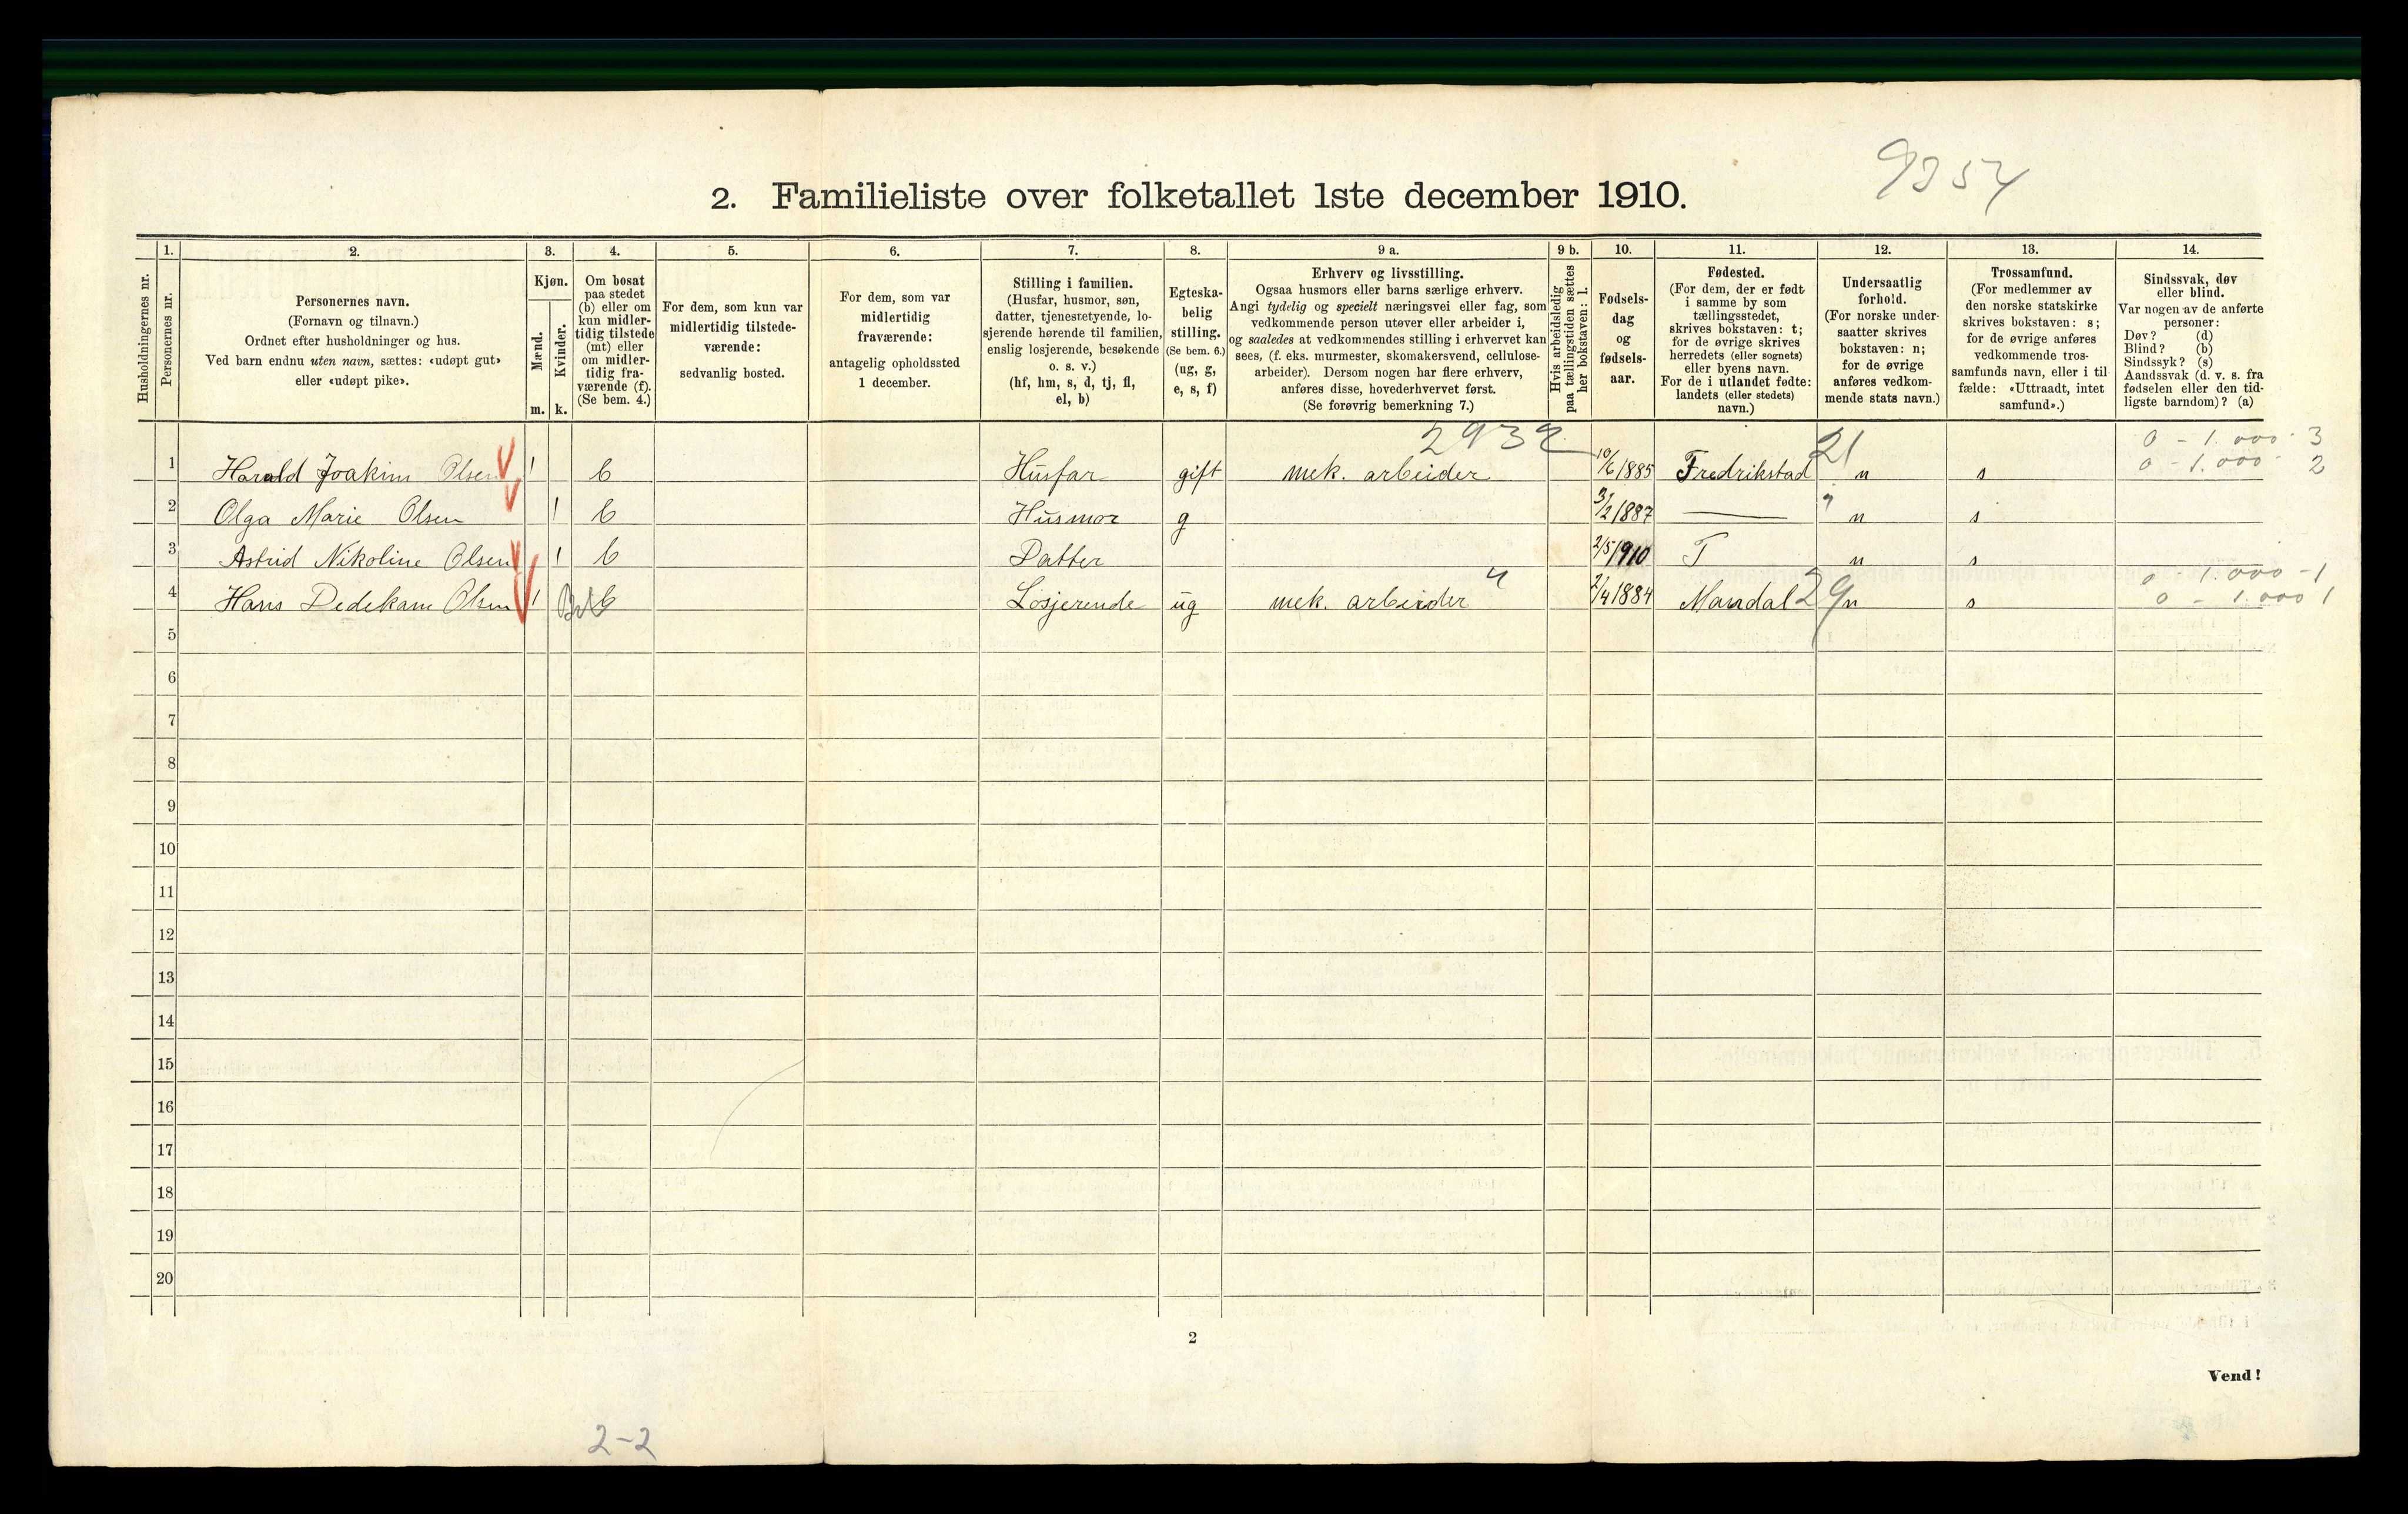 9354
2. Familieliste over folketallet 1ste december 1910.
1. 2. 3. 4. 5. 6. 7. 8. 9 a. 9 b. 10. 11. 12. 13. 14.
Husholdningernes nr.
Personernes nr.
Personernes navn.
(Fornavn og tilnavn.)
Ordnet efter husholdninger og hus.
Ved barn endnu uten navn, sættes: «udøpt gut»
eller «udøpt pike».
Kjøn.
Mænd.
Kvinder.
m. k.
Om bosat
paa stedet
(b) eller om
kun midler-
tidig tilstede
(mt) eller
om midler-
tidig fra-
værende (f).
(Se bem. 4.)
For dem, som kun var
midlertidig tilstede-
værende:
sedvanlig bosted.
For dem, som var
midlertidig
fraværende:
antagelig opholdssted
1 december.
Stilling i familien.
(Husfar, husmor, søn,
datter, tjenestetyende, lo-
sjerende hørende til familien,
enslig losjerende, besøkende
o. s. v.)
(hf, hm, s, d, tj, fl,
el, b)
Egteska-
belig
stilling.
(Se bem. 6.)
(ug, g,
e, s, f)
Erhverv og livsstilling.
Ogsaa husmors eller barns særlige erhverv.
Angi tydelig og specielt næringsvei eller fag, som
vedkommende person utøver eller arbeider i,
og saaledes at vedkommendes stilling i erhvervet kan
sees, (f. eks. murmester, skomakersvend, cellulose-
arbeider). Dersom nogen har flere erhverv,
anføres disse, hovederhvervet først.
(Se forøvrig bemerkning 7.)
Hvis arbeidsledig
paa tællingstiden sættes
her bokstaven: l.
Fødsels-
dag
og
fødsels-
aar.
Fødested.
(For dem, der er født
i samme by som
tællingsstedet,
skrives bokstaven: t;
for de øvrige skrives
herredets (eller sognets)
eller byens navn.
For de i utlandet fødte:
landets (eller stedets)
navn.)
Undersaatlig
forhold.
(For norske under-
saatter skrives
bokstaven: n;
for de øvrige
anføres vedkom-
mende stats navn.)
Trossamfund.
(For medlemmer av
den norske statskirke
skrives bokstaven: s;
for de øvrige anføres
vedkommende tros-
samfunds navn, eller i til-
fælde: «Uttraadt, intet
samfund».)
Sindssvak, døv
eller blind.
Var nogen av de anførte
personer:
Døv? (d)
Blind? (b)
Sindssyk? (s)
Aandssvak (d. v. s. fra
fødselen eller den tid-
ligste barndom)? (a)
2932 21 0 - 1.000 - 3
1 Harald Joakim Olsen 1 b Husfar gift mek. arbeider 10/6 1885 Fredrikstad n s 0 - 1.000 - 2
2 Olga Marie Olsen 1 b Husmor g 3/2 1887 — " n s
3 Astrid Nikoline Olsen 1 b Datter 2/5 1910 T n s
" 0 - 1 000 - 1
4 Hans Dedekam Olsen 1 b Losjerende ug mek. arbeider 2/4 1884 Mandal 29 n s 0 - 1.000 1
5
6
7
8
9
10
11
12
13
14
15
16
17
18
19
20
2
Vend!
2-2